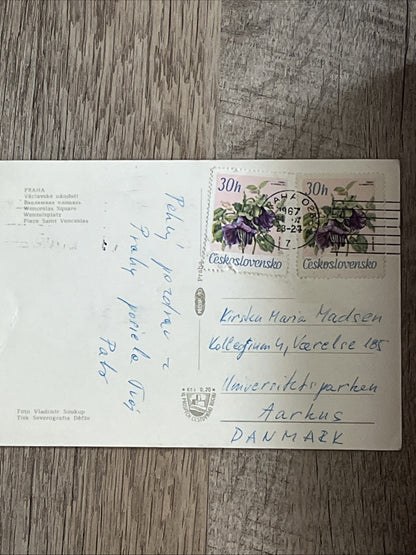 PRAHA
Václavské náměstí
Вацлавская площадь
Wenceslas Square
Wenzelsplatz
Place Saint Venceslas
Pekný pozdrav z
Prahy posiela Tvoj
Palo
Foto Vladimír Soukup
Tisk Severografia Děčín
Praha
Kčs 0,20
30h
Československo
30h
Československo
PRAHA
1967
23
Kirsten Maria Madsen
Kollegium 4, Værelse 185
Universitetsparken
Aarhus
DANMARK